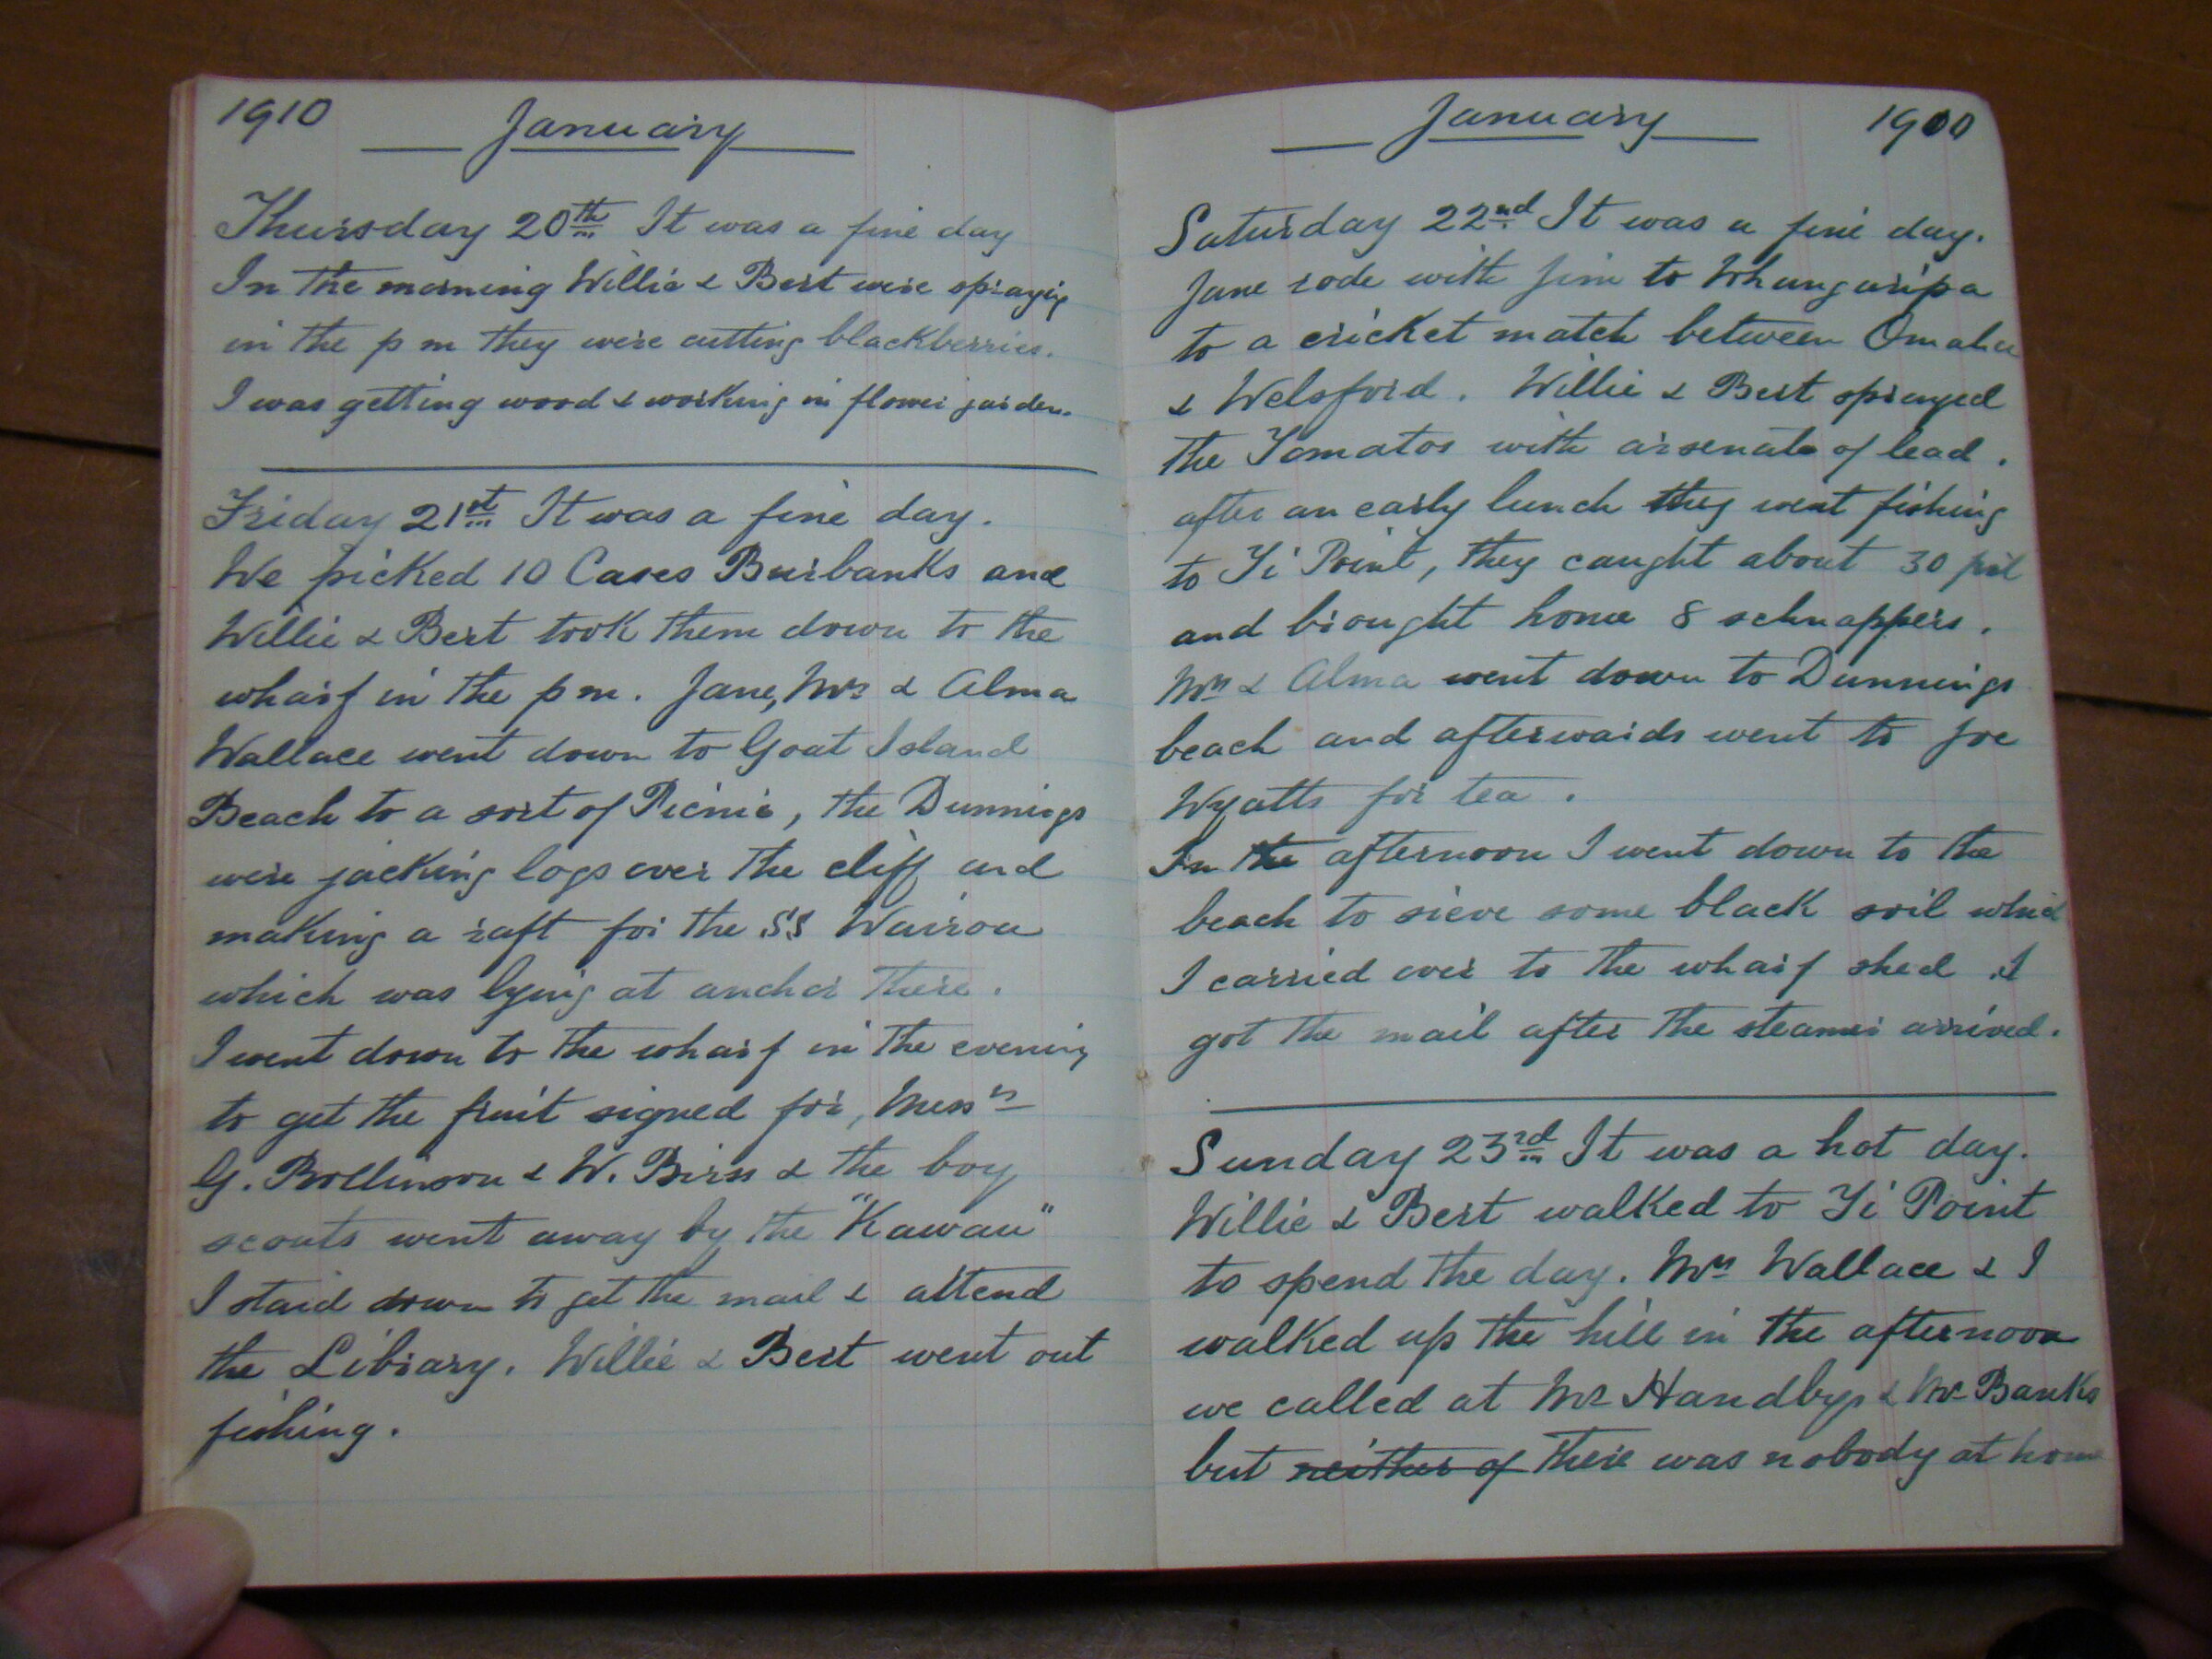 1910
January
Thursday 20th It was a fine day
In the morning Willie & Bert were spraying
in the p m they were cutting blackberries.
I was getting wood & working in flower garden.
Friday 21st It was a fine day.
We picked 10 Cases Burbanks and
Willie & Bert took them down to the
wharf in the p m. Jane, Mrs & Alma
Wallace went down to Goat Island
Beach to a sort of Picnic, the Dunnings
were jacking logs over the cliff and
making a raft for the SS Wairoa
which was lying at anchor there.
I went down to the wharf in the evening
to get the fruit signed for, Messrs
G. Rollinson & W. Birss & the boy
scouts went away by the "Kawau"
I staid down to get the mail & attend
the Library. Willie & Bert went out
fishing.
January
1910
Saturday 22nd It was a fine day.
Jane rode with Jim to Whangaripa
to a cricket match between Omaha
& Welsford. Willie & Bert sprayed
the Tomatos with arsenate of lead.
after an early lunch they went fishing
to Ti Point, they caught about 30
and brought home 8 schnappers.
Mrs & Alma went down to Dunnings
beach and afterwards went to Joe
Wyatts for tea.
In the afternoon I went down to the
beach to sieve some black soil which
I carried over to the wharf shed. I
got the mail after the steamer arrived.
Sunday 23rd It was a hot day.
Willie & Bert walked to Ti Point
to spend the day. Mrs Wallace & I
walked up the hill in the afternoon
we called at Mr Handbys & Mr Banks
but neither of there was nobody at home